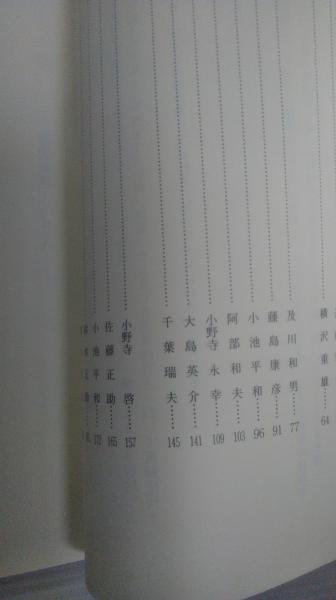 横沢重雄……64
及川和男……77
藤島康彦……91
小池平和……96
阿部和夫……103
小野寺永幸……109
大島英介……141
千葉瑞夫……145
小野寺啓……157
佐藤正助……165
小池平和……172